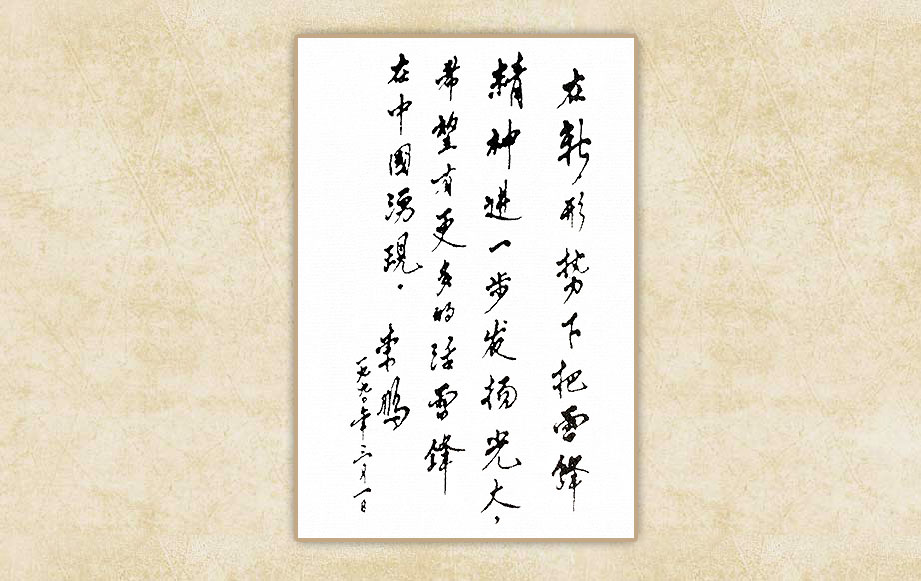 在新形势下把雷锋
精神进一步发扬光大，
希望有更多的活雷锋
在中國湧現。
李鹏
一九九〇年三月一日